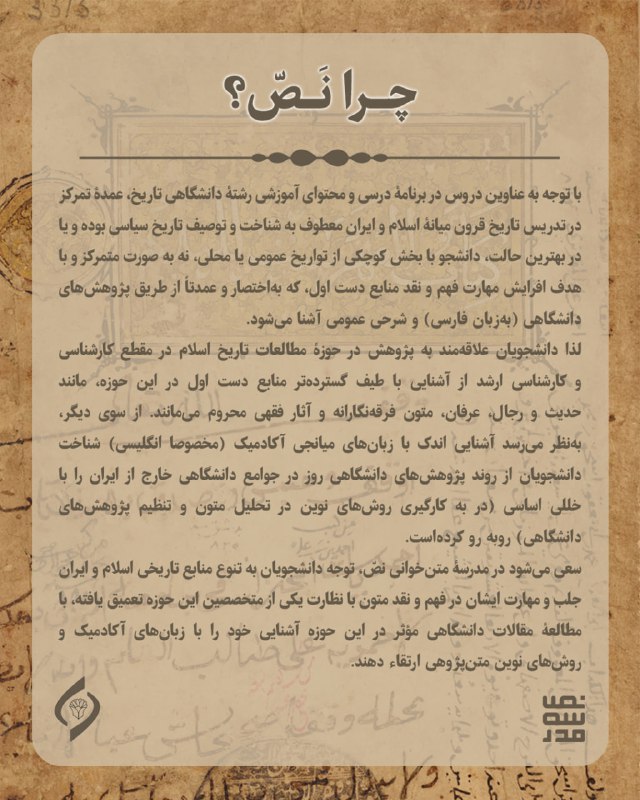 چرا نَصّ؟
با توجه به عناوین دروس در برنامهٔ درسی و محتوای آموزشی رشتهٔ دانشگاهی تاریخ، عمدهٔ تمرکز
در تدریس تاریخ قرون میانهٔ اسلام و ایران معطوف به شناخت و توصیف تاریخ سیاسی بوده و یا
در بهترین حالت، دانشجو با بخش کوچکی از تواریخ عمومی یا محلی، نه به صورت متمرکز و با
هدف افزایش مهارت فهم و نقد منابع دست اول، که به‌اختصار و عمدتاً از طریق پژوهش‌های
دانشگاهی (به‌زبان فارسی) و شرحی عمومی آشنا می‌شود.
لذا دانشجویان علاقه‌مند به پژوهش در حوزهٔ مطالعات تاریخ اسلام در مقطع کارشناسی
و کارشناسی ارشد از آشنایی با طیف گسترده‌تر منابع دست اول در این حوزه، مانند
حدیث و رجال، عرفان، متون فرقه‌نگارانه و آثار فقهی محروم می‌مانند. از سوی دیگر،
به‌نظر می‌رسد آشنایی اندک با زبان‌های میانجی آکادمیک (مخصوصا انگلیسی) شناخت
دانشجویان از روند پژوهش‌های دانشگاهی روز در جوامع دانشگاهی خارج از ایران را با
خللی اساسی (در به کارگیری روش‌های نوین در تحلیل متون و تنظیم پژوهش‌های
دانشگاهی) روبه رو کرده‌است.
سعی می‌شود در مدرسهٔ متن‌خوانی نصّ، توجه دانشجویان به تنوع منابع تاریخی اسلام و ایران
جلب و مهارت ایشان در فهم و نقد متون با نظارت یکی از متخصصین این حوزه تعمیق یافته، با
مطالعهٔ مقالات دانشگاهی مؤثر در این حوزه آشنایی خود را با زبان‌های آکادمیک و
روش‌های نوین متن‌پژوهی ارتقاء دهند.